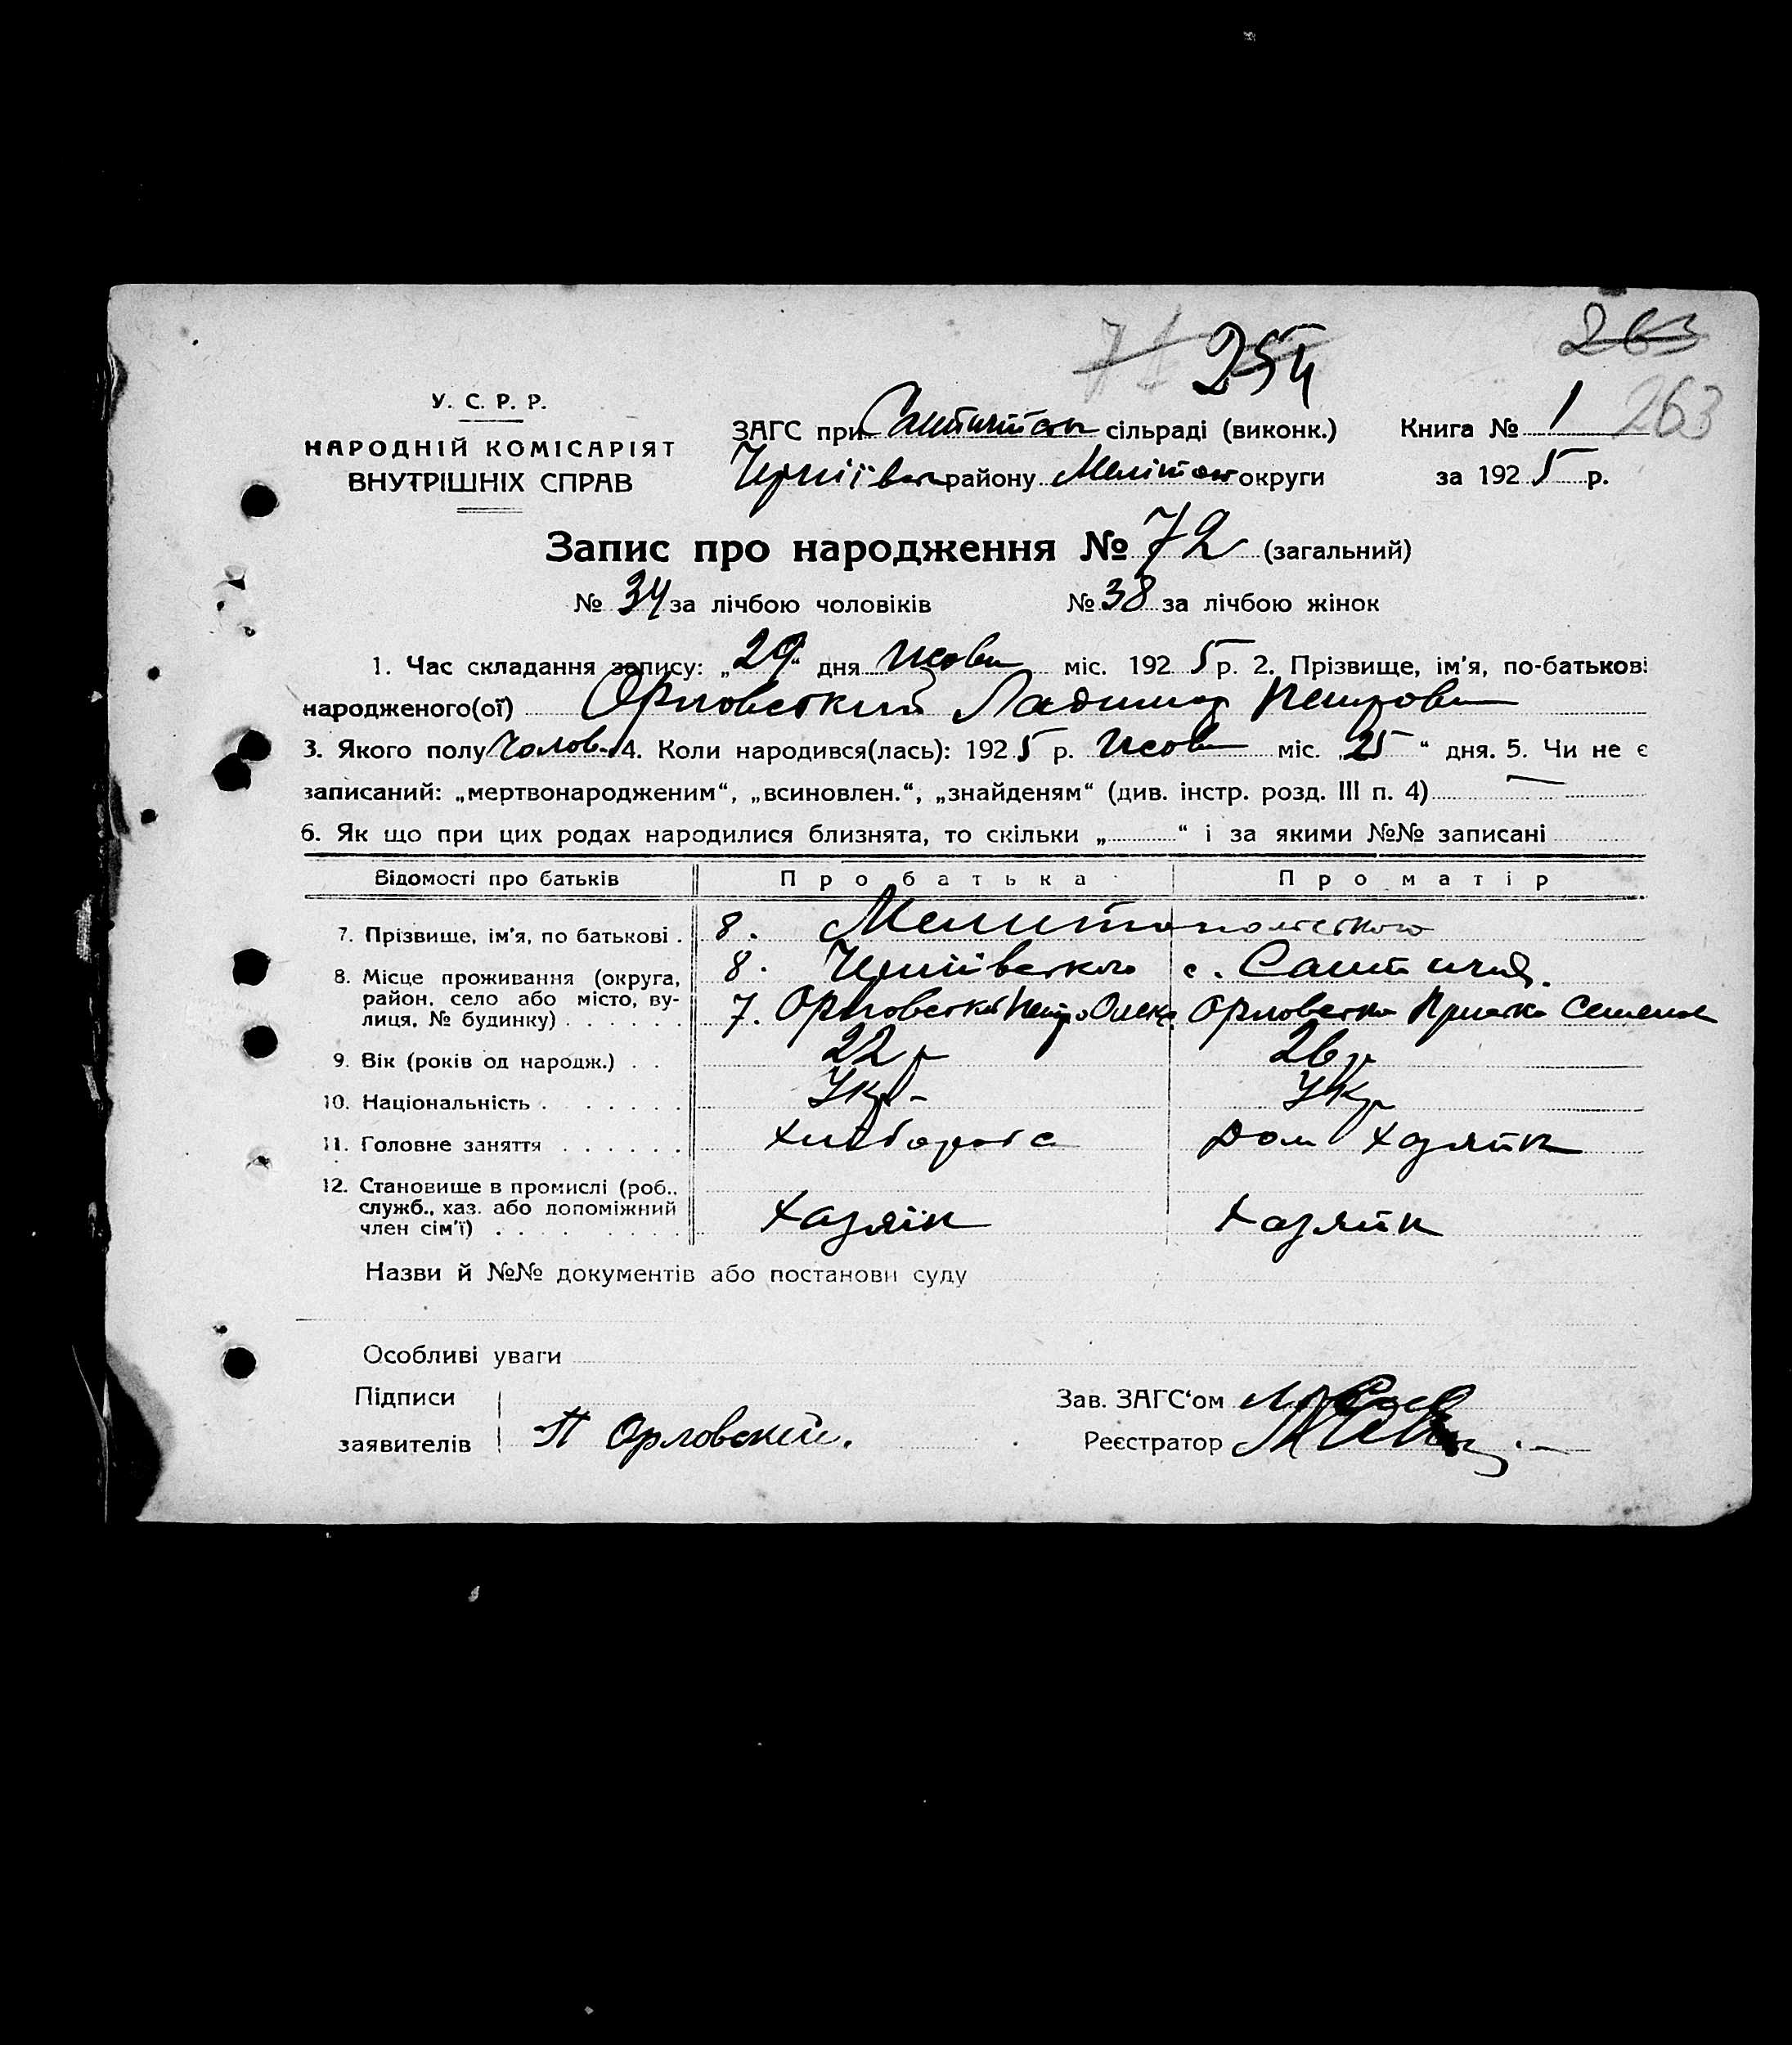 71 254 263
У. С. Р. Р.
НАРОДНІЙ КОМІСАРІЯТ
ВНУТРІШНІХ СПРАВ
ЗАГС при сільраді (виконк.) Книга № 1 263
району Меліток округи за 1925 р.
Запис про народження № 72 (загальний)
№ 34 за лічбою чоловіків № 38 за лічбою жінок
1. Час складання запису: „29“ дня міс. 1925 р. 2. Прізвище, ім'я, по-батькові
народженого(ої) Орловський Ладимир Петрови
3. Якого полу Чолов. 4. Коли народився(лась): 1925 р. міс. „25“ дня. 5. Чи не є
записаний: „мертвонародженим“, „всиновлен.“, „знайденям“ (див. інстр. розд. III п. 4) —
6. Як що при цих родах народилися близнята, то скільки „ “ і за якими №№ записані
Відомості про батьків Про батька Про матір
7. Прізвище, ім'я, по батькові . 8. Мелитопольського
8. Місце проживання (округа, район, село або місто, вулиця, № будинку) 8. с.
7. Орловский Петро Олекс. Орловська Семенов
9. Вік (років од народж.) . . 22 р 26 р
10. Національність . Укр- Укр
11. Головне заняття хлібороб Дом хазяйк
12. Становище в промислі (роб.,
служб., хаз. або допоміжний
член сім'ї) хазяїн хазяйк
Назви й №№ документів або постанови суду
Особливі уваги
Підписи Зав. ЗАГС'ом
заявителів П Орловский. Реєстратор